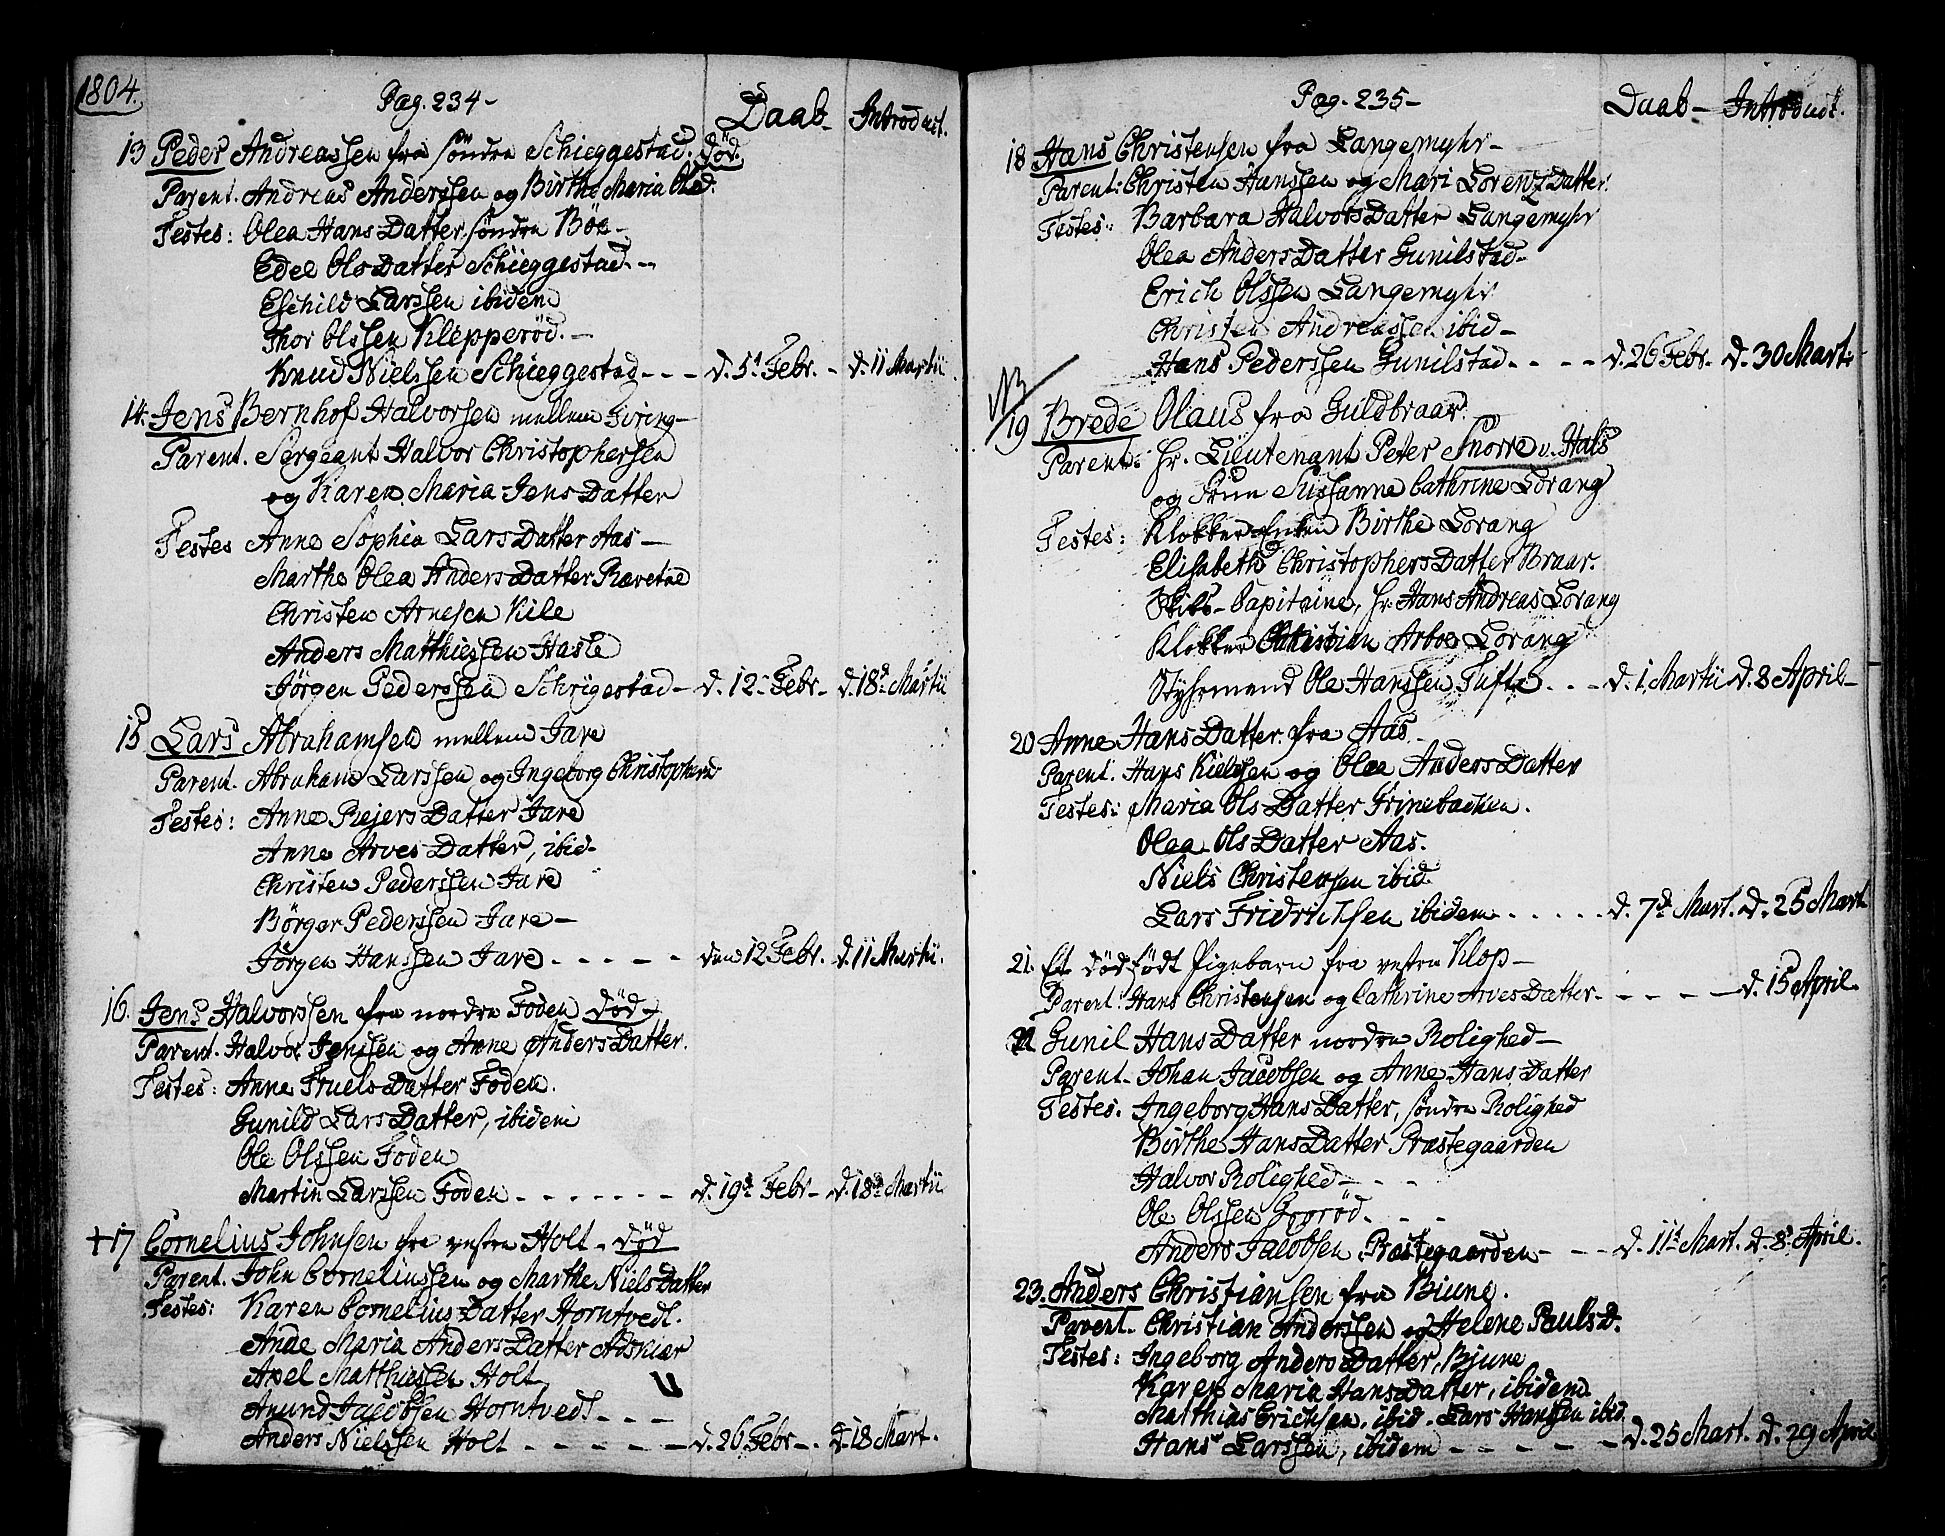 1804.
Pag. 234 -
Daab - Introduct.
13 Peder Andreassen fra söndre Schieggestad. död.
Parent. Andreas Anderssen og Birthe Maria Olsd.
Testes: Olea Hans Datter söndre Böe -
Edel Ols Datter Schieggestad. -
Eschild Larssen ibidem
Thor Olssen Klepperöd. -
Knud Nielssen Schieggestad - - - d. 5t Febr. - d. 11 Martii
14. Jens Bernhof Halvorsen mellem Gireng -
Parent. Sergeant Halvor Christophersen
og Karen Maria Jens Datter
Testes Anne Sophia Lars Datter Aas -
Marthe Olea Anders Datter Rævetae
Christen Arnesen Kile
Anders Matthiessen Hasle
Jörgen Pederssen Schrigestad - d. 12 Febr. - d. 18d Martii
15 Lars Abrahamsen mellem Jare
Parent. Abraham Larssen og Ingeborg Christophersd
Testes: Anne Rejers Datter Jare
Anne Arves Datter, ibid.
Christen Pederssen Jare
Börger Pederssen Jare -
Jörgen Hanssen Jare - - - - - den 12 Febr. d. 11 Martii.
16. Jens Halvorssen fra nordre Foden död
Parent. Halvor Jenssen og Anne Anders Datter.
Testes: Anne Truels Datter Foden.
Gunild Lars Datter, ibidem
Ole Olssen Foden
Martin Larssen Foden - - - - - - - d. 19d Febr - d. 18d Martii
+17 Cornelius Johnsen fra vestre Holt - död
Parent. John Corneliussen og Marthe Niels Datter
Testes: Karen Cornelius Datter Horntvedt.
Anne Maria Anders Datter Adskiær
Axel Matthiessen Holt
Anund Jacobsen Horntvedt - - -
Anders Nielssen Holt - - - - - - d. 26 Febr - . d. 18 Mart.
Pag. 235 -
Daab - Introduct.
18 Hans Christensen fra Langemyhr -
Parent: Christen Hanssen og Mari Lorenz Datter.
Testes: Barbara Halvors Datter Langemyhr
Olea Anders Datter Gunilstad -
Erich Olssen Langemyhr
Christen Andreassen ibid -
Hans Pederssen Gunilstad - - - - d. 26 Febr. d. 30 Mart:
NB
19 Brede Olaus fra Guldbraar.
Parent: hr. Lieutenant Peter Snorre v. Hals
og Frun Sussanne Cathrine Lorang
Testes: Klokker Enken Birthe Lorang
Elisabeth Christophers Datter Braar.
Skibs - Capitaine, hr. Hans Andreas Lorang
Klokker Christian Arboe Lorang
Styhrmand Ole Hanssen Tufte - - - d. 1. Martii d. 8 April -
20 Anne Hans Datter fra Aas -
Parent. Hans Kielssen og Olea Anders Datter
Testes: Maria Ols Datter Grinebacken.
Olea Ols Datter Aas.
Niels Christensen ibid.
Lars Fridrichsen ibidem - - - - - d. 7d Mart. d. 25 Mart
21. Et dödfödt Pigebarn fra vestre Klop -
Parent: Hans Christensen og Cathrine Arves Datter - - - - - d. 15 April.
22 Gunil Hans Datter nordre Rolighed -
Parent - Johan Jacobsen og Anne Hans Datter
Testes. Ingeborg Hans Datter, söndre Rolighed
Birthe Hans Datter Præstegaarden
Halvor Rolighed - - -
Ole Olssen Gogröd - - -
Anders Jacobsen Præstegaarden - - - d. 11t Mart. d. 8 April.
23. Anders Christiansen fra Biune.
Parent. Christian Anderssen og Helene Pauls D.
Testes: Ingeborg Anders Datter, Bjune
Karen Maria Hans Datter, ibidem
Matthias Erichsen, ibid - Lars Hanssen ibid.
Hans Larssen, ibidem - - - - - - d. 25 Mart. d. 29 April